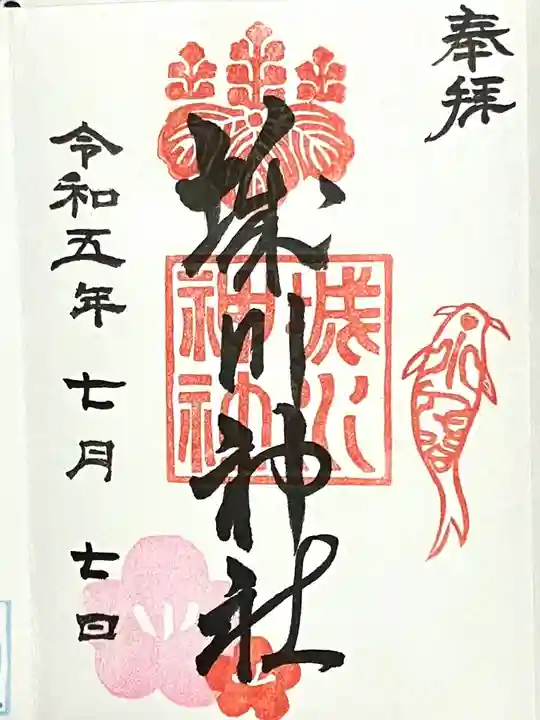 奉拝
城川神社
城川
神社
令和五年七月七日